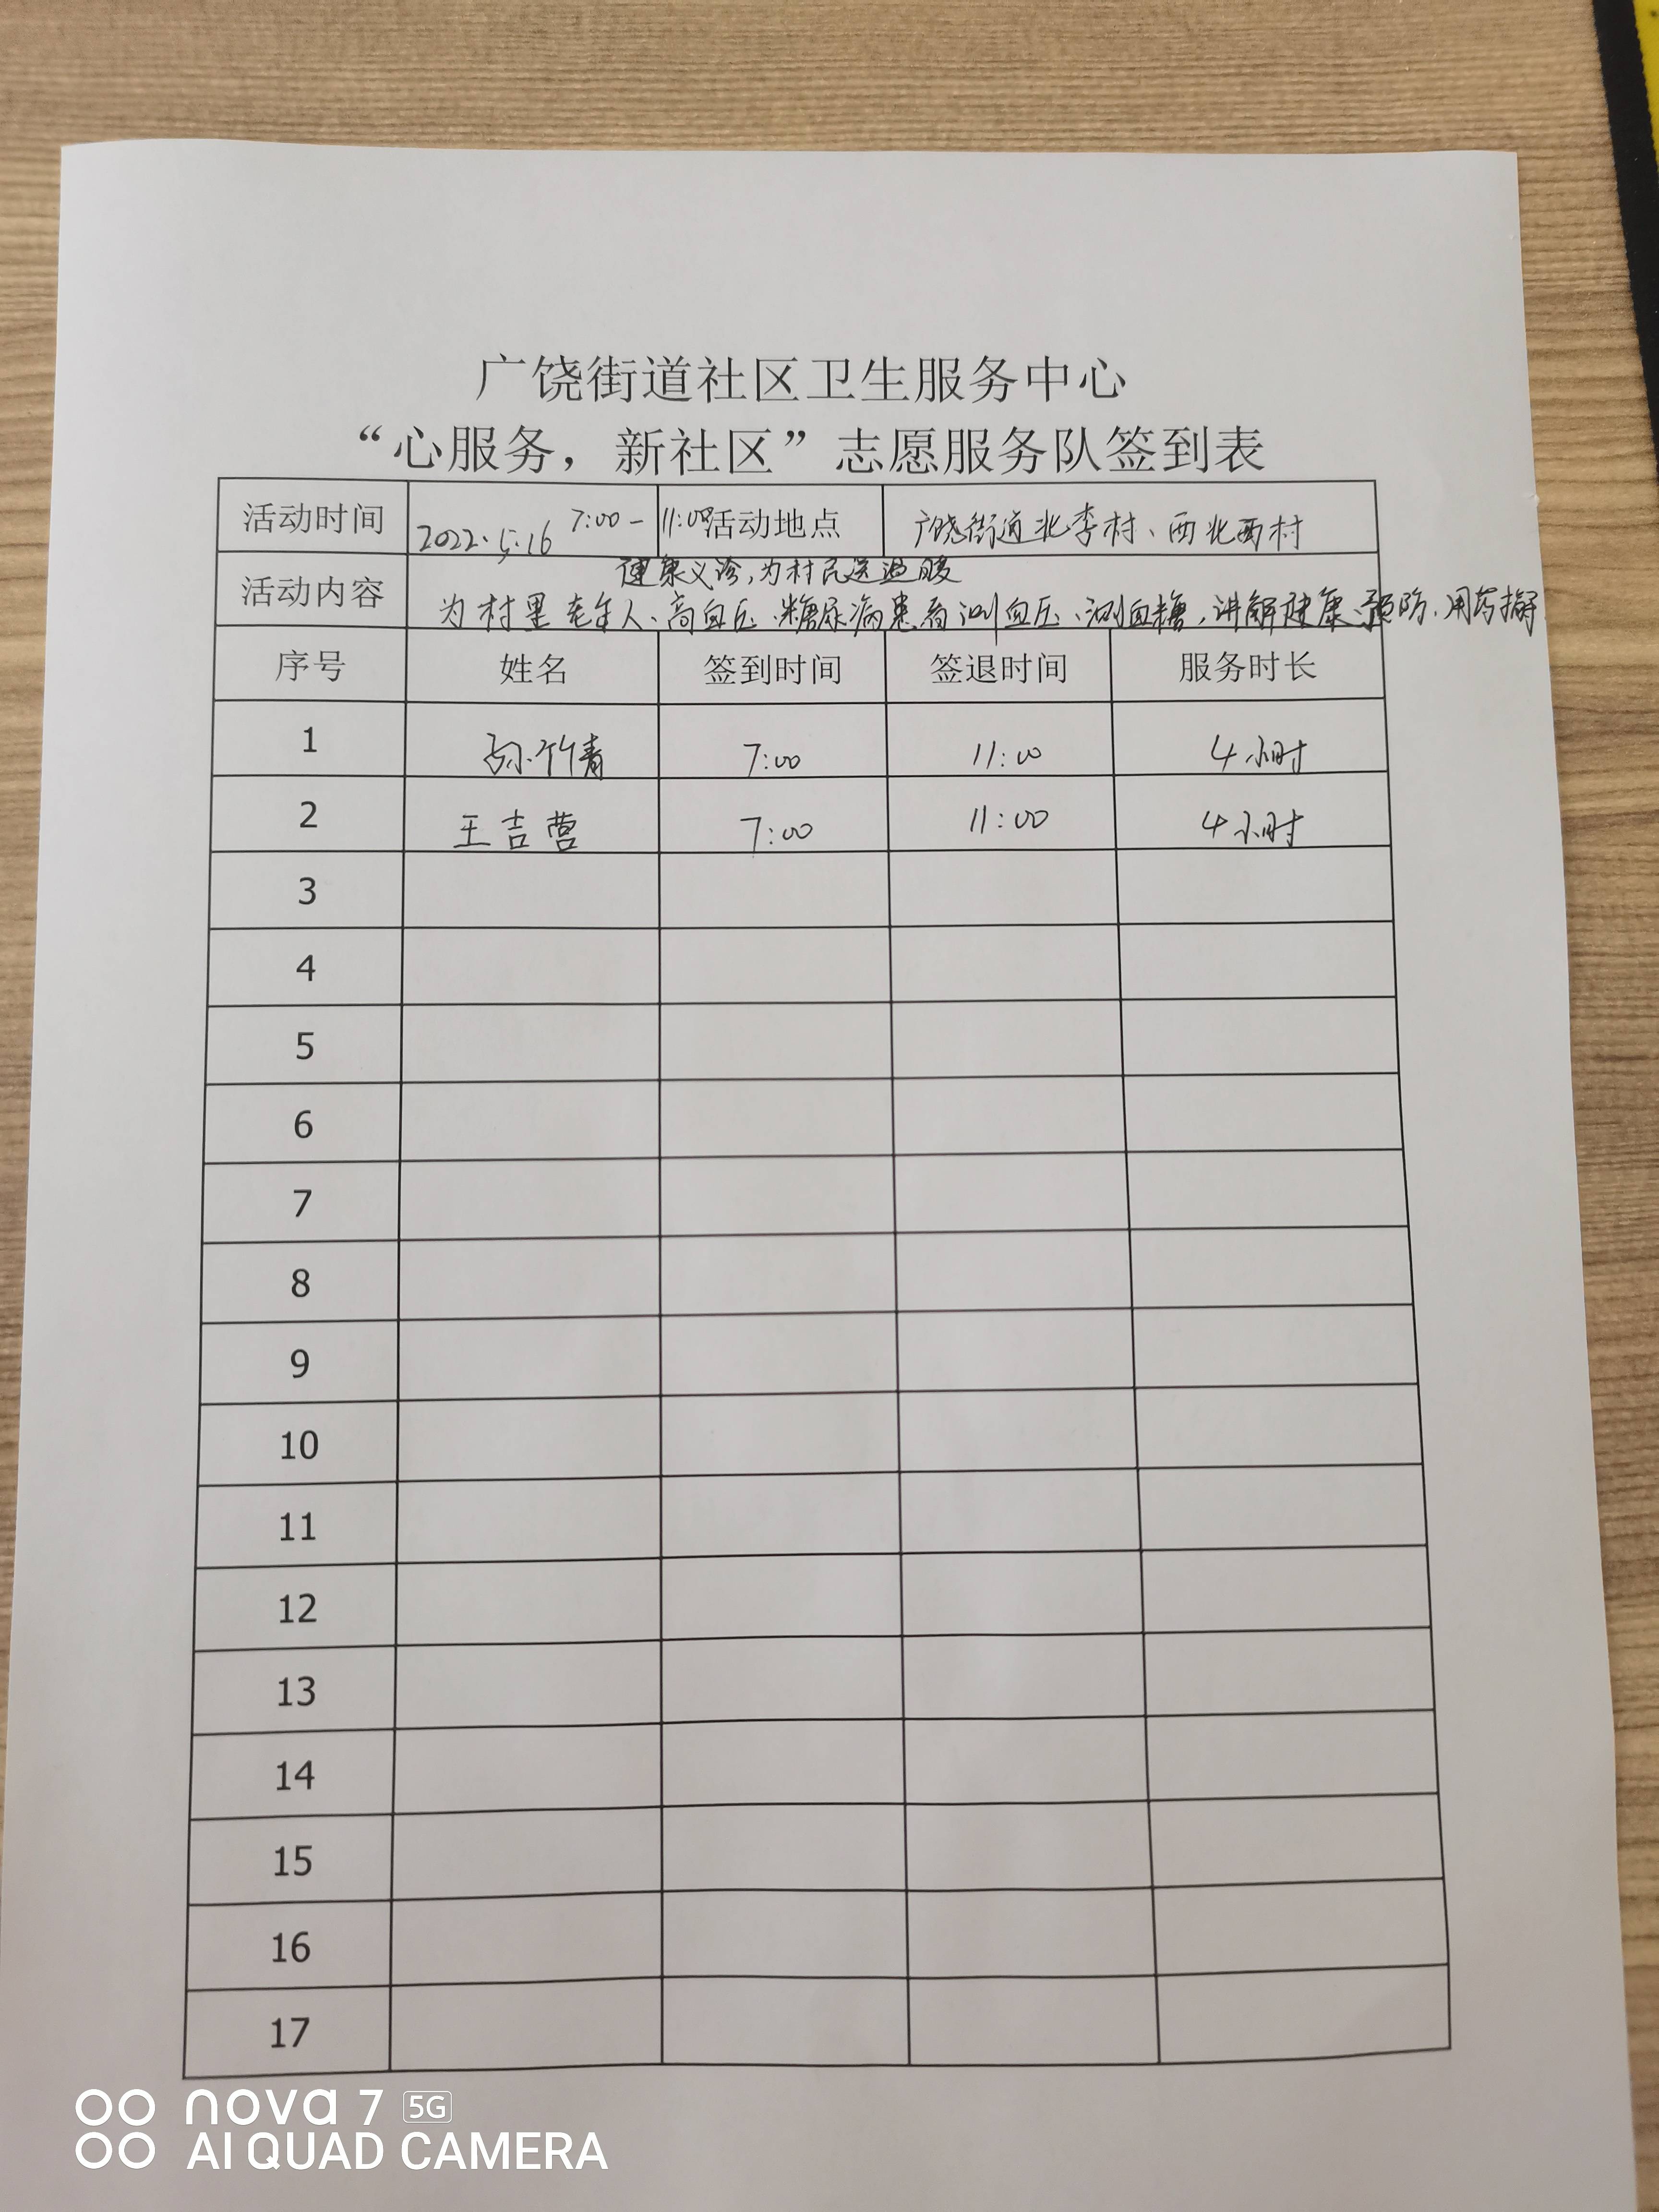 广饶街道社区卫生服务中心
“心服务，新社区”志愿服务队签到表
活动时间 2022.5.16 7:00-11:00 活动地点 广饶街道北李村、西北西村
健康义诊,为村民送温暖
活动内容 为村里老年人、高血压、糖尿病患者测血压、测血糖,讲解健康、预防、用药
序号 姓名 签到时间 签退时间 服务时长
1 孙竹青 7:00 11:00 4小时
2 王吉营 7:00 11:00 4小时
3
4
5
6
7
8
9
10
11
12
13
14
15
16
17
nova 7 5G
AI QUAD CAMERA